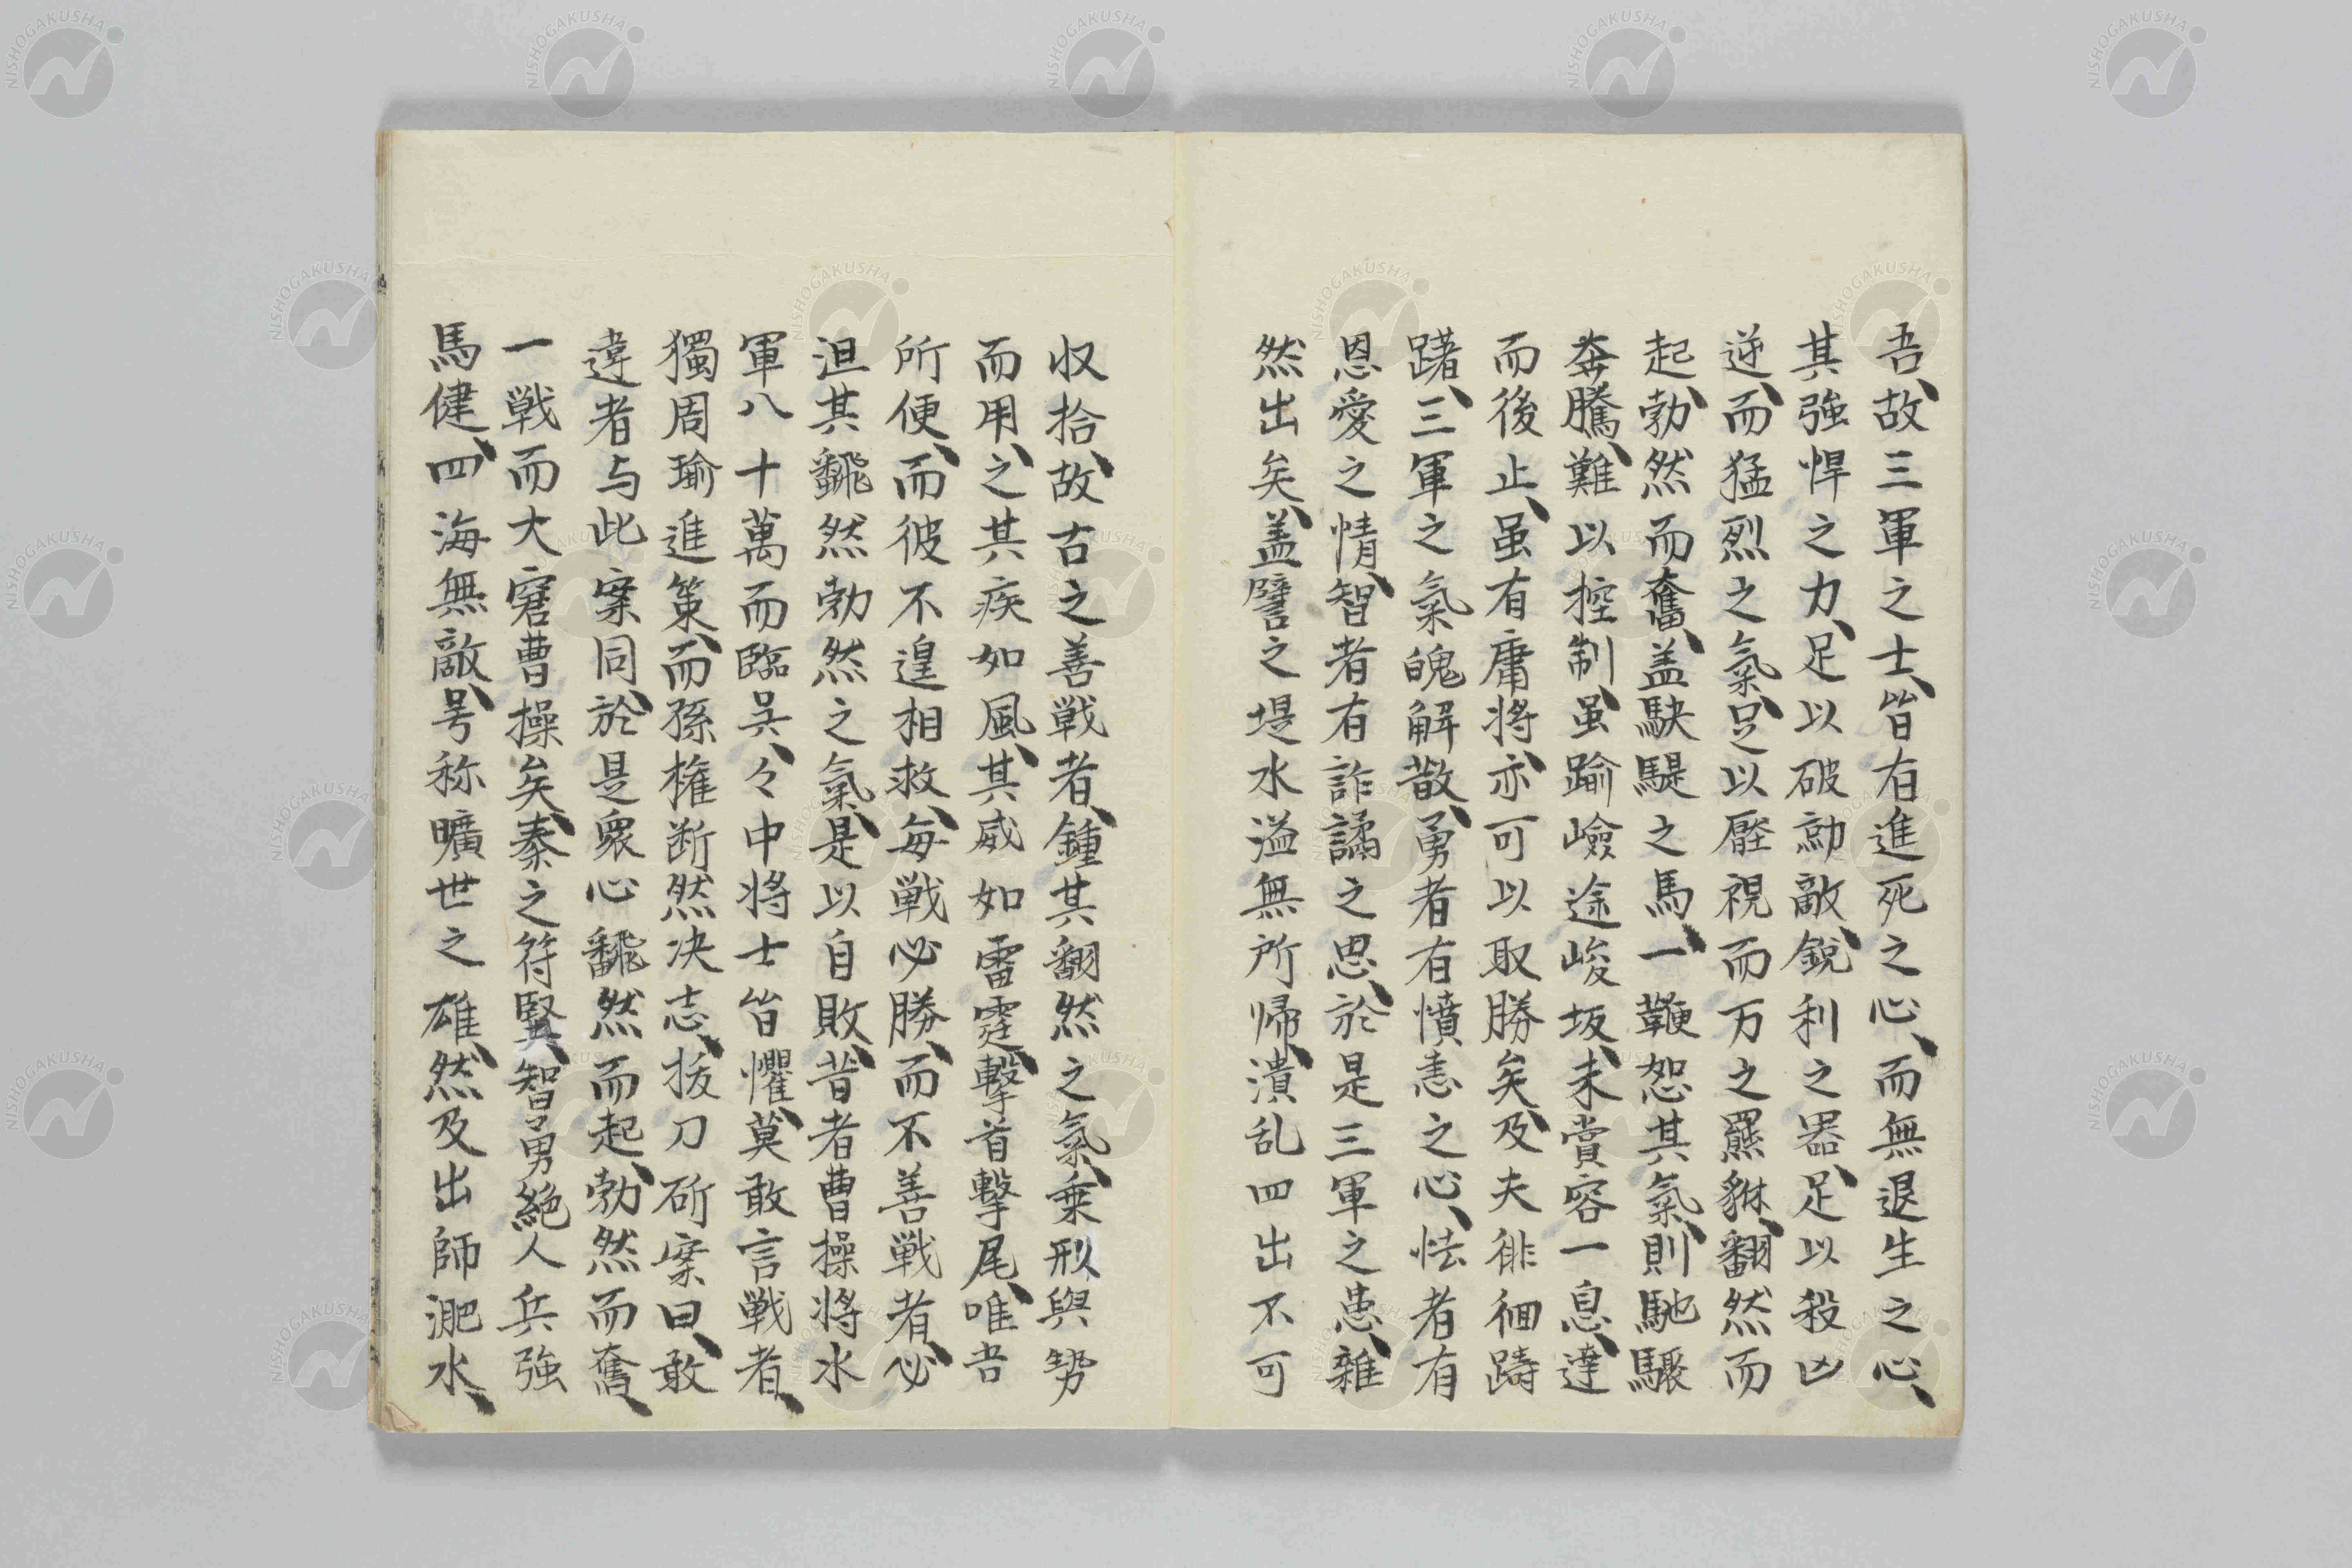 吾、故三軍之士、皆有進死之心、而無退生之心、
其強悍之力、足以破勍敵、銳利之器、足以殺凶
逆、而猛烈之氣、足以壓視而万之羆貅、翻然而
起、勃然而奮、盖駃騠之馬、一鞭恕其氣、則馳驟
奔騰、難以控制、虽踰嶮途峻坂、未賞容一息、達
而後止、虽有庸将、亦可以取勝矣、及夫徘徊躊
躇、三軍之氣魄解散、勇者有憤恚之心、怯者有
恩愛之情、智者有詐譎之思、於是三軍之恚、雜
然出矣、盖譬之堤水溢無所帰、潰乱四出不可
収拾、故古之善戦者、鍾其翻然之氣、乗形與勢
而用、之其疾如風、其威如雷霆、擊首擊尾、唯吾
所便、而彼不遑相救、每戦必勝、而不善戦者、必
沮其飜然勃然之氣、是以自敗、昔者曹操将水
軍八十萬而臨呉、々中将士皆懼、莫敢言戦者、
獨周瑜進策、而孫権断然决志、拔刀斫案曰、敢
違者与此案同、於是衆心飜然而起、勃然而奮、
一戦而大窘曹操矣、秦之符堅、智勇絶人兵強
馬健、四海無敵、号称曠世之雄、然及出師淝水、